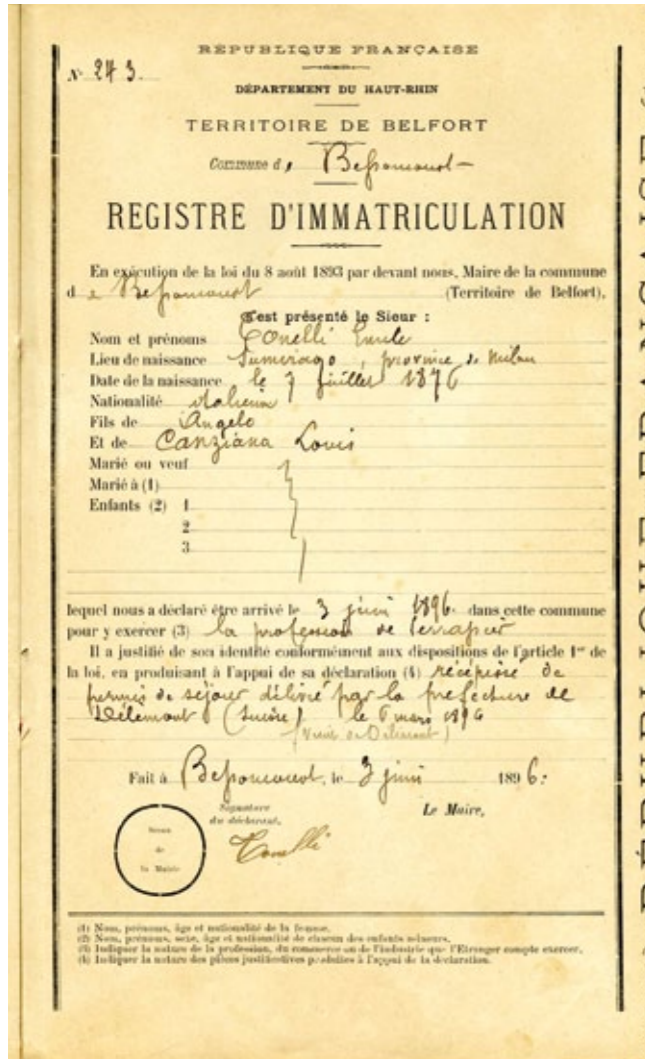 RÉPUBLIQUE FRANÇAISE
N° 243.
DÉPARTEMENT DU HAUT-RHIN
TERRITOIRE DE BELFORT
Commune de Bessoncourt
REGISTRE D'IMMATRICULATION
En exécution de la loi du 8 août 1893 par devant nous, Maire de la commune
de Bessoncourt (Territoire de Belfort),
S'est présenté le Sieur :
Nom et prénoms Conelli Emile
Lieu de naissance province de Milan
Date de la naissance le 7 juillet 1876
Nationalité italienne
Fils de Angelo
Et de Canziana Louis
Marié ou veuf
Marié à (1)
Enfants (2) 1
2
3
lequel nous a déclaré être arrivé le 3 juin 1896 dans cette commune
pour y exercer (3) la profession de terrassier
Il a justifié de son identité conformément aux dispositions de l'article 1er de
la loi, en produisant à l'appui de sa déclaration (4) récépissé de
permis de séjour délivré par la préfecture de
Délémont (Suisse) le 6 mars 1896
Fait à Bessoncourt, le 3 juin 1896.
Signature
du déclarant,
Le Maire,
Sceau
de
la Mairie
Conelli
(1) Nom, prénoms, âge et nationalité de la femme.
(2) Nom, prénoms, sexe, âge et nationalité de chacun des enfants mineurs.
(3) Indiquer la nature de la profession, du commerce ou de l'industrie que l'Etranger compte exercer.
(4) Indiquer la nature des pièces justificatives produites à l'appui de la déclaration.